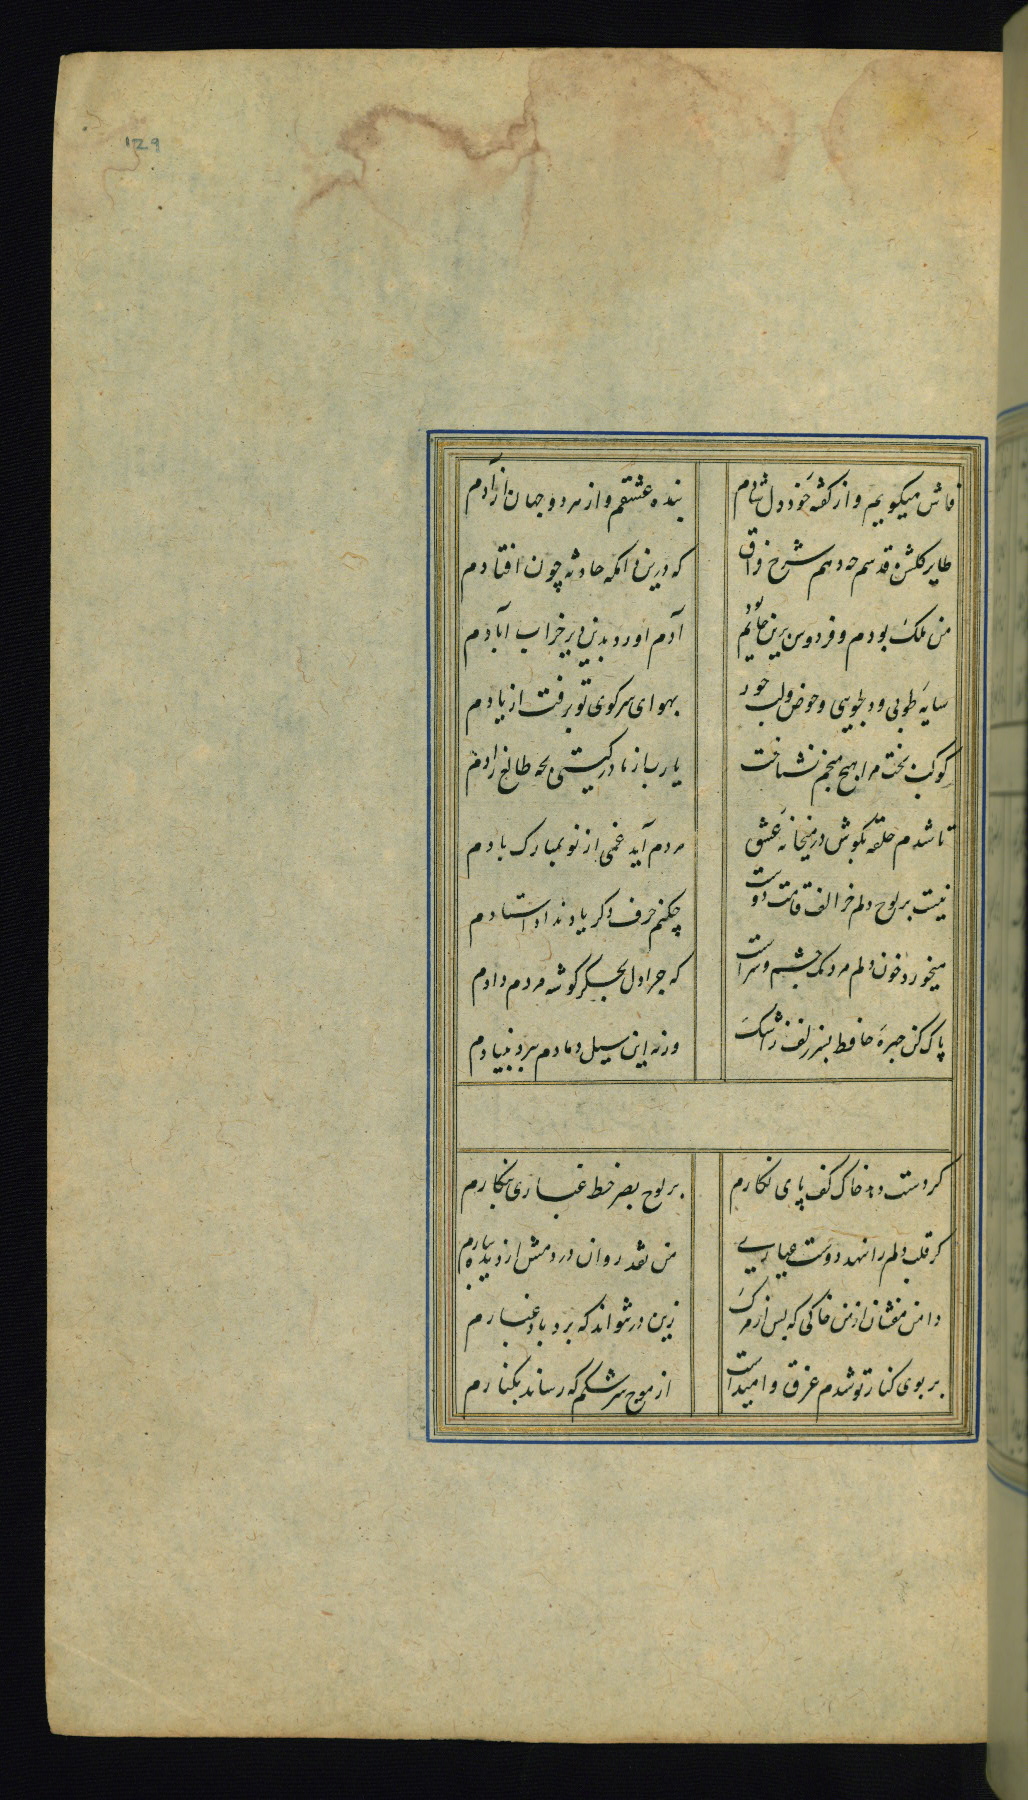 129
فاش میکویم و از کفتهٔ خود دل شادم بنده عشقم و از هر دو جهان ازادم
طایر کلشن قدسم چه دهم شرح فراق که درین دامکه حادثه چون افتادم
من ملک بودم و فردوس برین جایم بود آدم اورد بدین دیر خراب ابادم
سایهٔ طوبی و دلجویی حور و لب حوض بهوای سر کوی تو برفت از یادم
کوکب بخت مرا هیچ منجم نشناخت یا رب از مادر کیتی بچه طالع زادم
تا شدم حلقه بکوش در میخانهٔ عشق هر دم آید غمی از نو بمبارک بادم
نیست بر لوح دلم جز الف قامت دوست چکنم حرف دکر یاد نداد استادم
میخورد خون دلم مردمک چشم و سزاست که چرا دل بجکر کوشه مردم دادم
پاک کن چهرهٔ حافظ بسر زلف ز اشک ورنه این سیل دمادم ببرد بنیادم
کر دست دهد خاک کف پای نکارم بر لوح بصر خط غباری بنکارم
کر قلب دلم را نهد دوست عیاری من نقد روان در دمش از دیده بیارم
دامن مفشان از من خاکی که پس از مرک زین در نتواند که برد باد غبارم
بر بوی کنار تو شدم غرق و امیداست از موج سرشکم که رساند بکنارم